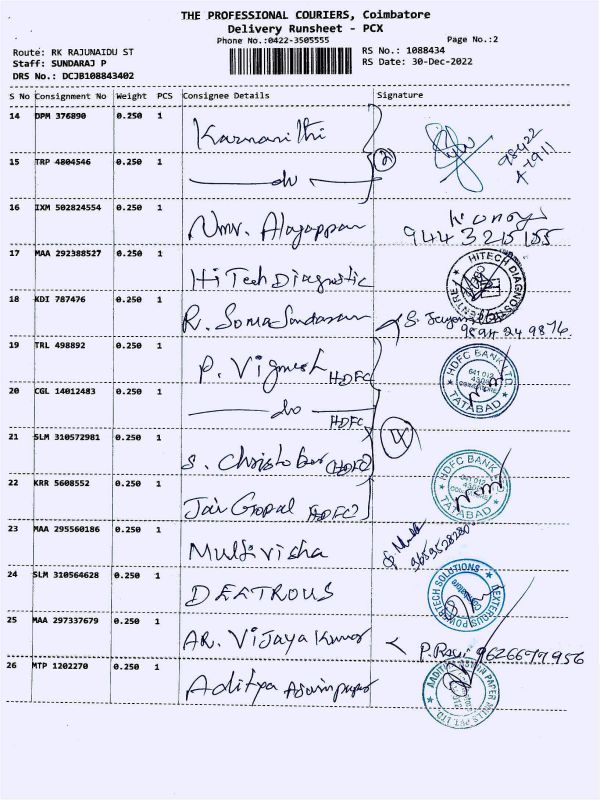 THE PROFESSIONAL COURIERS, Coimbatore
Delivery Runsheet - PCX
Phone No.:0422-3505555
Page No.:2
Route: RK RAJUNAIDU ST
RS No.: 1088434
Staff: SUNDARAJ P
RS Date: 30-Dec-2022
DRS No.: DCJB108843402
S No Consignment No Weight PCS Consignee Details Signature
14 DPM 376890 0.250 1
98422
47911
15 TRP 4804546 0.250 1 do
2
16 IXM 502824554 0.250 1 Alagappan
9443215155
17 MAA 292388527 0.250 1 HiTech Diagnostic
HITECH DIAGNOSTIC CENTRE
18 KDI 787476 0.250 1 R. Soma Sundaram
9894249876
19 TRL 498892 0.250 1 P. Vignesh HDFC
HDFC BANK LTD.
641 012
TATABAD
20 CGL 14012483 0.250 1 do HDFC
21 SLM 310572981 0.250 1 S. Christober (HDFC)
HDFC BANK
641 012
TATABAD
22 KRR 5608552 0.250 1 Jai Gopal HDFC)
23 MAA 295560186 0.250 1 Multivisha
9659528280
24 SLM 310564628 0.250 1 DEXTROUS
DEXTEROUS POWERTECH SOLUTIONS
25 MAA 297337679 0.250 1 AR. Vijaya Kumar
P. Ravi 9626679956
26 MTP 1202270 0.250 1 Aditya